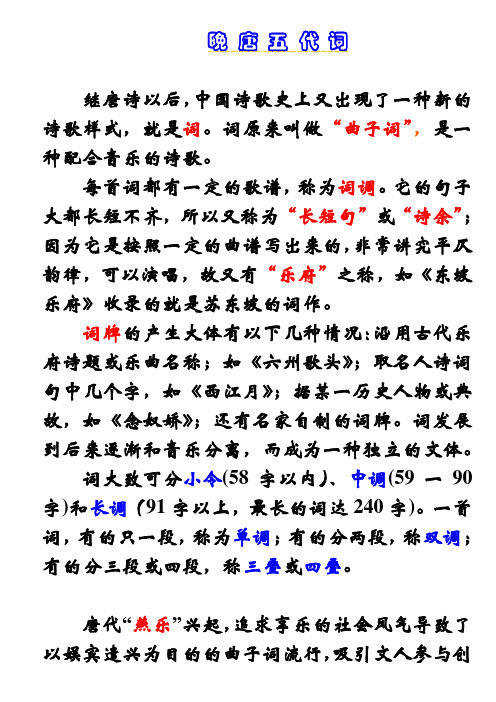 晚 唐 五 代 词
继唐诗以后，中国诗歌史上又出现了一种新的
诗歌样式，就是词。词原来叫做“曲子词”，是一
种配合音乐的诗歌。
每首词都有一定的歌谱，称为词调。它的句子
大都长短不齐，所以又称为“长短句”或“诗余”；
因为它是按照一定的曲谱写出来的，非常讲究平仄
韵律，可以演唱，故又有“乐府”之称，如《东坡
乐府》收录的就是苏东坡的词作。
词牌的产生大体有以下几种情况：沿用古代乐
府诗题或乐曲名称；如《六州歌头》；取名人诗词
句中几个字，如《西江月》；据某一历史人物或典
故，如《念奴娇》；还有名家自制的词牌。词发展
到后来逐渐和音乐分离，而成为一种独立的文体。
词大致可分小令(58 字以内)、中调(59 一 90
字)和长调（91 字以上，最长的词达 240 字)。一首
词，有的只一段，称为单调；有的分两段，称双调；
有的分三段或四段，称三叠或四叠。
唐代“燕乐”兴起，追求享乐的社会风气导致了
以娱宾遣兴为目的的曲子词流行，吸引文人参与创